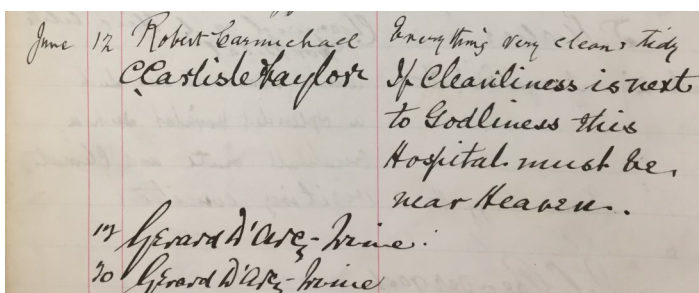 June 12 Robert Carmichael Everything very clean & tidy
C. Carlisle Taylor If Cleanliness is next
to Godliness this
Hospital must be
near Heaven.
Gerard D'Arcy-Irvine.
Gerard D'Arcy-Irvine